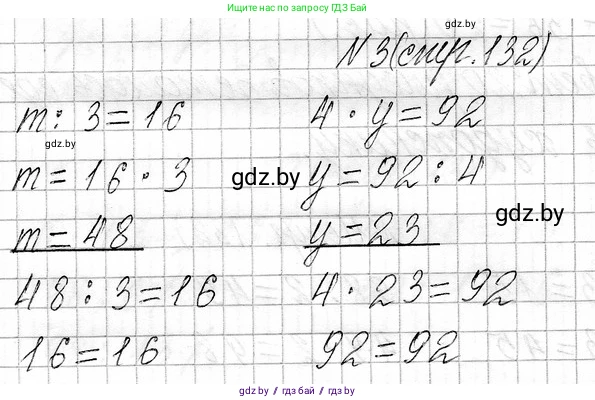 Нашли нас по запросу ГДЗ Бай
gdz.by
N 3 (стр. 132)
m : 3 = 16
4 · y = 92
gdz.by
m = 16 · 3
gdz.by
y = 92 : 4
m = 48
y = 23
gdz.by
48 : 3 = 16
4 · 23 = 92
16 = 16
92 = 92
gdz.by / гдз бай / gdz.by